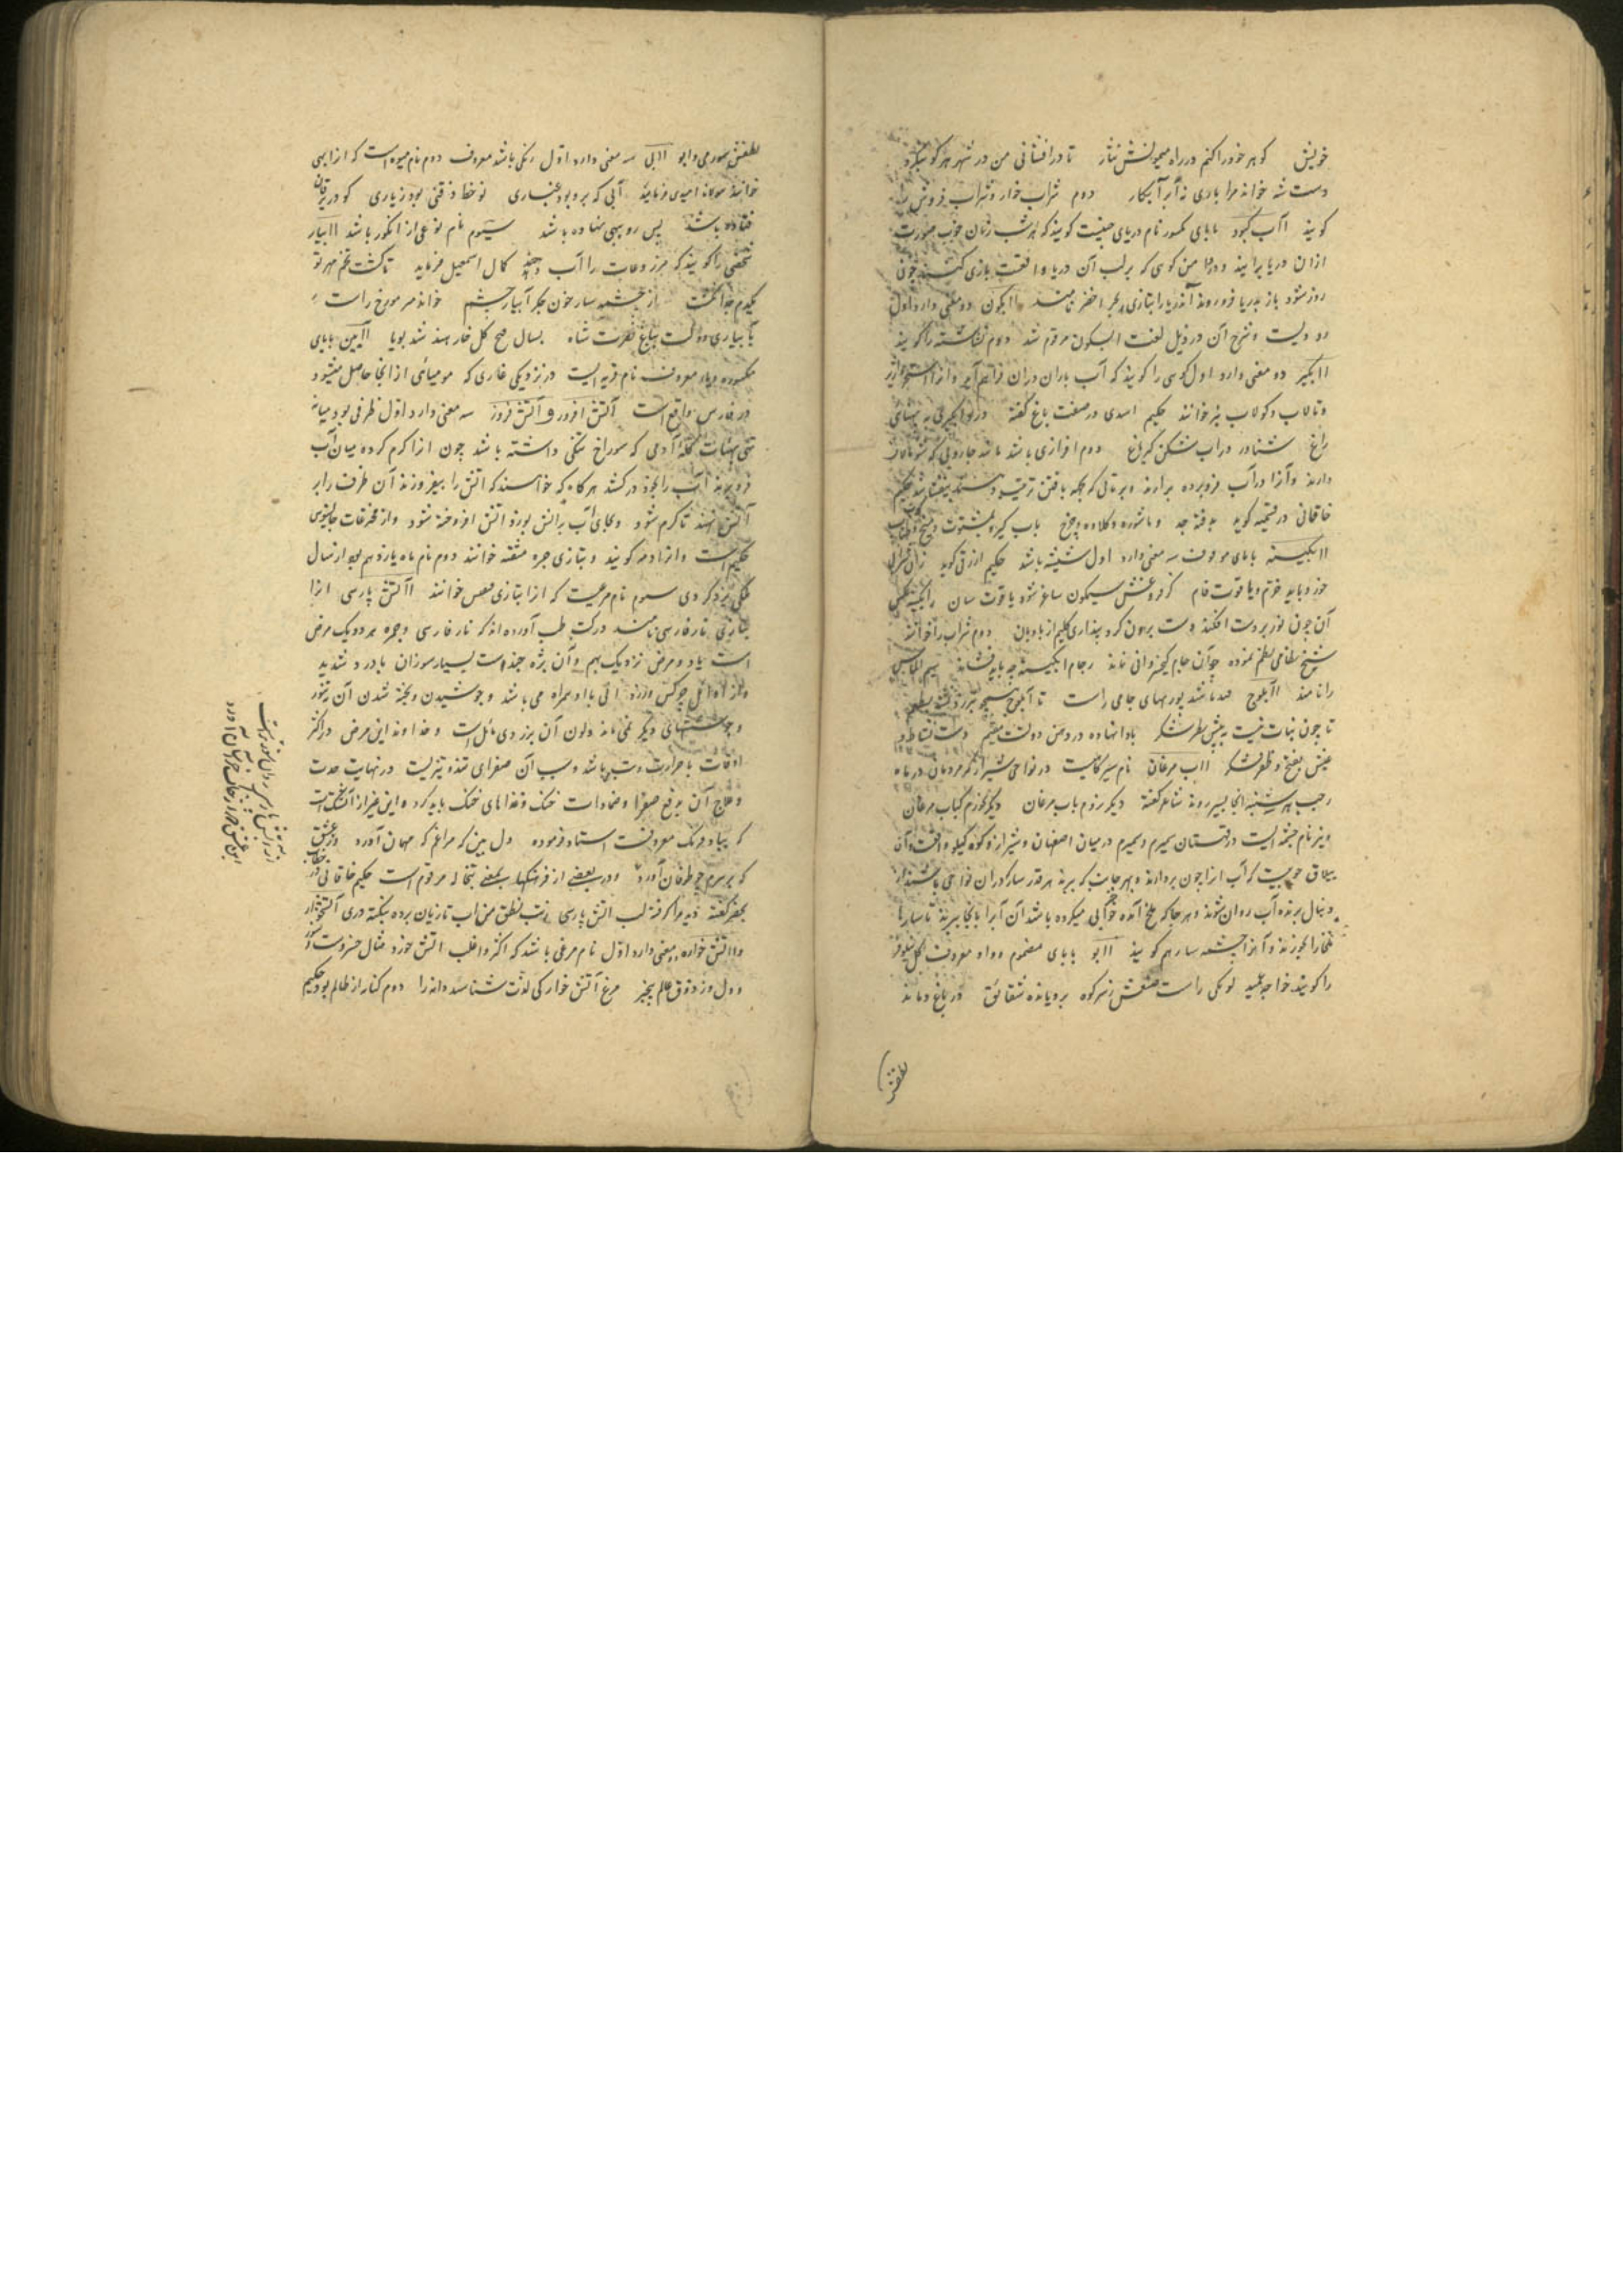 خویش گوهر خود را کنم در راه میمونش نثار تا در افشانی من در شهر هر کو بنگرد
دست شه خواند مرا بادی نه ابر آبکار دوم شراب خوار و شراب فروش را
گویند اآب کبود با بای مکسور نام دریای چینست گویند که هر شب زنان خوب صورت
ازان دریا برآیند و در دامن کوهی که بر لب آن دریا واقعست بازی کنند چون
روز شود باز بدریا فرو روند آندریا را بتازی بحر اخضر نامند اابکون دو معنی دارد اول
رودیست و شرح آن در ذیل لغت ابسکون مرقوم شد دوم نشاسته را گویند
اابگیر ده معنی دارد اول گوی را گویند که آب باران دران فراهم آید و انرا
و تالاب و کولاب نیز خوانند حکیم اسدی در صفت باغ گفته
راغ شناور در آب شکن گیر ماغ دوم افزاری باشد مانند جاروبی که
دارند و آنرا در آب فرو برده برارند و بر تانی که بجهة بافتن ترتیب
خاقانی در قسمیه گوید به فته جد و ماشوره و کلاوه و چرخ باب گیر و بمشتوت
اابگینه با بای موقوف سه معنی دارد اول شیشه باشد حکیم ازرقی گوید
خورد باید خرم و یاقوت فام کز فروغش سیمگون ساغر شود یاقوت سان
آن چون نور بر دست افکند دست برون کرد پنداری کلیم از بادبان دوم شراب را خوانند
شیخ نظامی نظم نموده چو آن جام کیخسروانی نماند سیم الماس
را نامند اابلوج قند باشد پوربهای جامی راست تا آبلوج
تا چون نبات نیست به پیش نظر شکر بادا نهاده در دهن دولت مقیم دست نشاط و
عیش بفتح و ظفر شکر ااب مرغان نام سیرگاهیست در نواحی شیراز که مردمان در ماه
رجب هر سه شنبه آنجا بسیر روند شاعر گفته دیگر نروم باب مرغان دیگر نخورم کباب مرغان
و نیز نام چشمه ایست در قهستان سمیرم و سمیرم در میان اصفهان و شیراز و کوه گیلو واقعست و آن
ییلاق خوبیست که آب انرا چون بردارند و بهر جانب که ببرند هر قدر سار که دران نواحی باشند
دنبال برنده آب روان شوند و هر جا که ملخ آمده خرابی میکرده باشد آن آبرا بآنجا ببرند تا سارها
ملخ را بخورند و آنرا چشمه سار هم گویند اابو با بای مضموم و واو معروف گل نیلوفر
را گویند خواجه عمید لویکی راست صنعش ز سر کوه برویانده شقائق در باغ دمانده
لطفش
لطفش سوری و ابو اابی سه معنی دارد اول رنگی باشد معروف دوم نام میوه است که انرا بهی
خوانند مولانا امیدی فرماید آبی که برو بود غباری نوخط ذقنی بود ز یاری کو در یرقان
فتاده باشد پس رو ببهی نهاده باشد سیوم نام نوعی از انگور باشد اابیار
شخصی را گویند که مزروعات را آب دهد کمال اسمعیل فرماید تا کشت تخم مهر تو
یکدم جدا نگشت از چشمه سار خون جگر آبیار چشم خواند میر مورخ راست
بآبیاری دولت بباغ نصرت شاه بسال صبح گل خار سند شد بویا اآیین بابای
مکسور و یاء معروف نام قریه ایست در نزدیکی غاری که مومیائی از انجا حاصل میشود
در فارس واقع است آتش افروز و آتش فروز سه معنی دارد اول ظرفی بود میانه
تهی بهیئات کله آدمی که سوراخ تنگی داشته باشد چون انرا گرم کرده میان آب
فرو برند آب را بخود در کشد هرگاه که خواهند که اتش را بیفروزند آن ظرف را بر
آتش نهند تا گرم شود و بجای آب برآتش بوزد اتش افروخته شود و از مخترعات جالینوس
حکیم است و انرا دمه گویند و بتازی جره مثقبه خوانند دوم نام ماه یازدهم بود از سال
ملکی یزدگردی سیوم نام مرغیست که انرا بتازی ققنس خوانند اآتش پارسی انرا
بتازی نار فارسی نامند در کتب طب آورده اند که نار فارسی و جمره هر دو یک مرض
است یا دو مرض نزدیک بهم و آن بثره چند است بسیار سوزان با درد شدید
و جوششهای دیگر نمی ماند و لون آن بزردی مائل است و خداوند این مرض در اکثر
اوقات با حرارت و تب باشد و سبب آن صفرای تند و تیزیست در نهایت حدت
و علاج آن بدفع صفرا و ضمادات خنک و غذاهای خنک باید کرد و این غیر از آتشک است
که بباد فرنگ معروفست استاد فرموده دل بین که مرا غم که مهمان آورد وز عشق
که بر سرم چو طوفان آورد و در بعضی از فرهنگها بمعنی تبخاله مرقوم است حکیم خاقانی
بنظم گفته دید مرا گرفته لب اتش پارسی ز تب نطق من آب تازیان برده بنکته دری آتشخوار
و ااتش خواره دو معنی دارد اول نام مرغی باشد که اکثر و اغلب اتش خورد مثال خسرو است
و دل و ز ذوق عالم بیخبر مرغ آتش خوار کی لذت شناسد دانه را دوم کنایه از ظالم بود حکیم